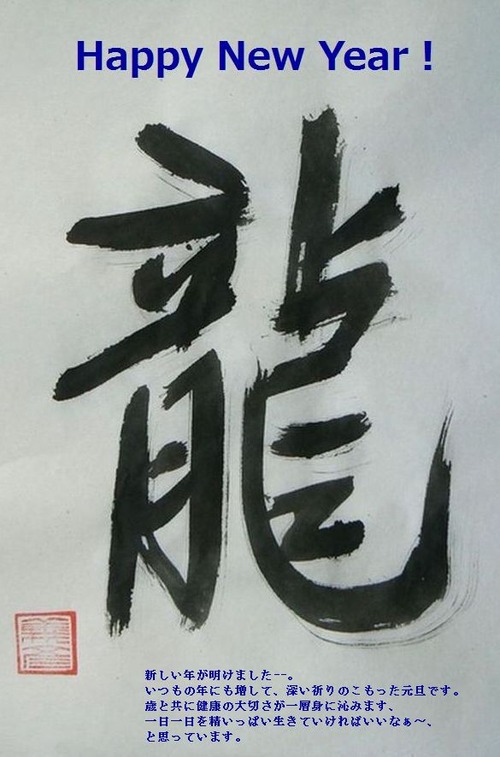 Happy New Year !
龍
新しい年が明けました--。
いつもの年にも増して、深い祈りのこもった元旦です。
歳と共に健康の大切さが一層身に沁みます、
一日一日を精いっぱい生きていければいいなぁ～、
と思っています。